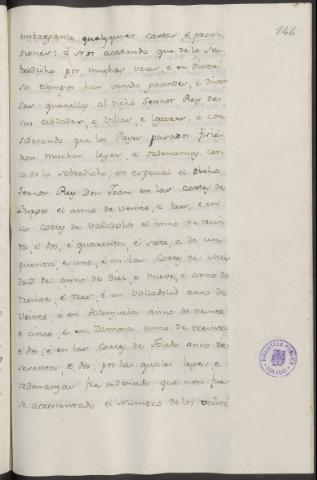 146
embargante qualesquier cartas, é provi-
siones: é Nos acatando que de lo So-
bredicho por muchas veces é en diver-
sos tiempos han venido grandes, é diver-
sas querellas al dicho Sennor Rey de
sus cibdades, é Villas, é Logares, é con-
siderando que los Reyes pasados ficie-
ron muchas leyes, é ordenanzas cer-
ca de lo sobredicho, en especial el dicho
Sennor Rey Don Joan en las cortes de
Burgos el anno de veinte, é tres, é en
las Cortes de Valladolid el anno de trein-
ta, é dos, é quarenta, é siete, é de cin-
quenta, é uno, é en las Cortes de Ma-
drid del anno de Diez, e nueve, é anno de
treinta, é tres, é en Valladolid anno de
Veinte, é en Palenzuela anno de veinte
é cinco, é en Zamora anno de treinta
é dos, é en las Cortes de Toledo anno de
sesenta, é dos, por las quales leyes é
ordenanzas fue ordenado que non fue-
se acrecentado el Numero de los veinte
BIBLIOTECA PUBLICA
TOLEDO